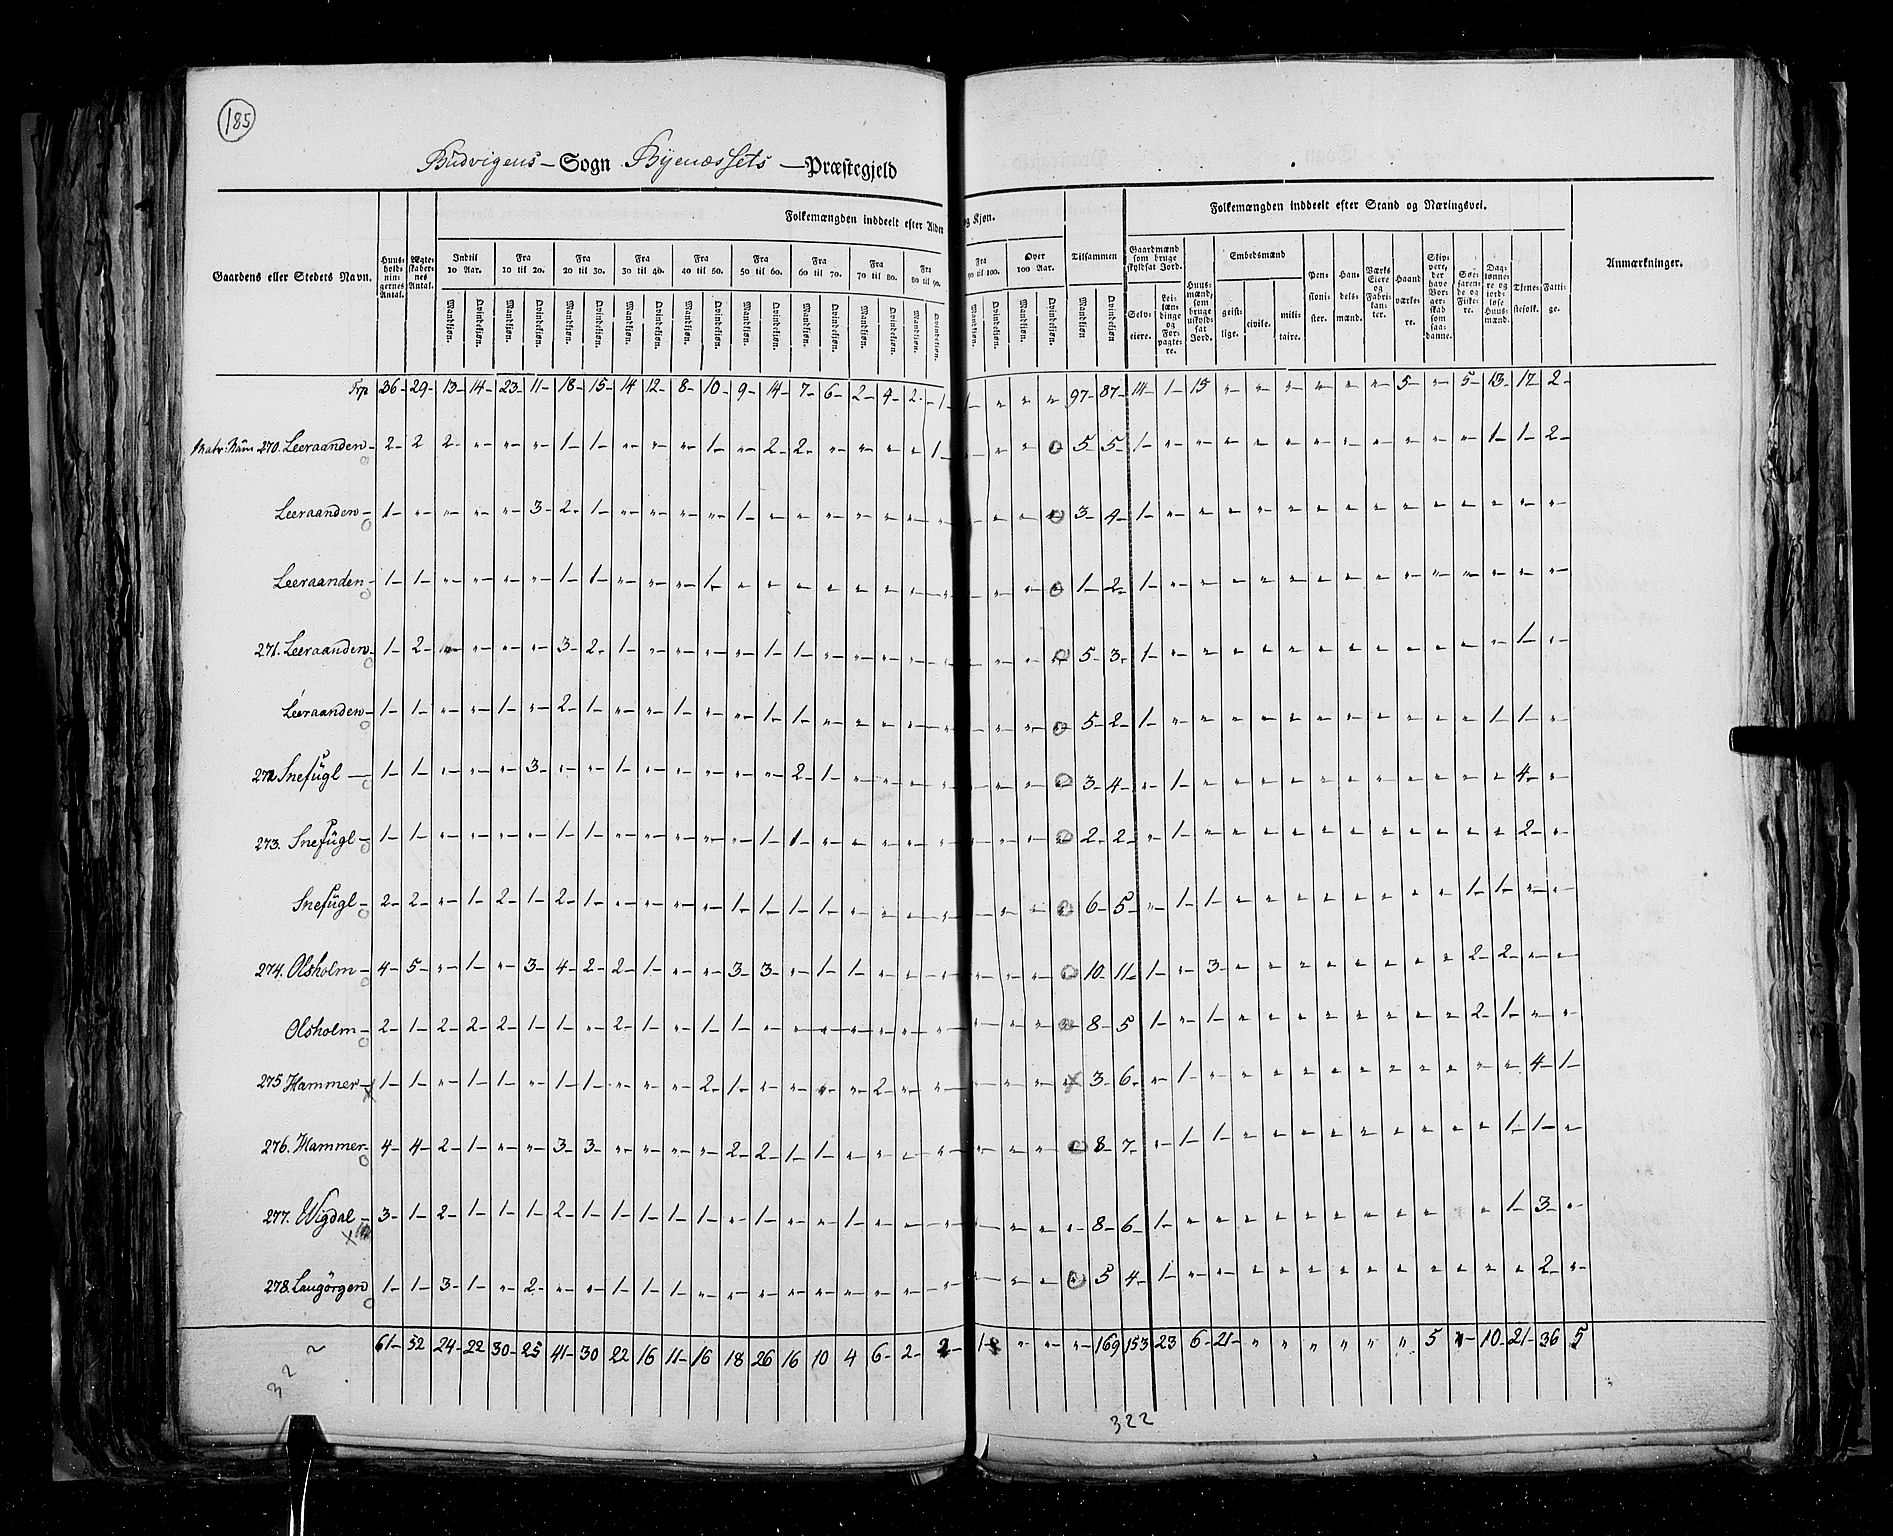 185
Budvigens – Sogn Byenæssets – Præstegjeld
Gaardens eller Stedets Navn. Huusholdningernes Antal. Ægteskabernes Antal. Folkemængden inddeelt efter Alder og Kjøn. Tilsammen Folkemængden inddeelt efter Stand og Næringsvei. Anmærkninger.
Indtil 10 Aar. Fra 10 til 20. Fra 20 til 30. Fra 30 til 40. Fra 40 til 50. Fra 50 til 60. Fra 60 til 70. Fra 70 til 80. Fra 80 til 90. Fra 90 til 100. Over 100 Aar. Gaardmænd som bruge skyldsat Jord. Huusmænd, som bruge uskyldsat Jord. Embedsmænd Pensionister. Handelsmænd. Værks Eiere og Fabrikanter. Haandværkere. Skippere, der have Borgerskab som saadanne. Søefarende og Fiskere. Daglønnere og jordløse Huusmænd. Tjenestefolk. Fattige.
Mandkjøn. Qvindekjøn. Mandkjøn. Qvindekjøn. Mandkjøn. Qvindekjøn. Mandkjøn. Qvindekjøn. Mandkjøn. Qvindekjøn. Mandkjøn. Qvindekjøn. Mandkjøn. Qvindekjøn. Mandkjøn. Qvindekjøn. Mandkjøn. Qvindekjøn. Mandkjøn. Qvindekjøn. Mandkjøn. Qvindekjøn. Mandkjøn Qvindekjøn Selveiere. Leilændinge og Forpagtere. geistlige. civile. militaire.
Trp 36 29 13 14 23 11 18 15 14 12 8 10 9 14 7 6 2 4 2 1 1 " " " 97 87 14 1 15 " " " " " " 5 " 5 13 17 2
Matr: Num 270. Leeraanden 2 2 2 " " " 1 1 " " " 1 " 2 2 " " " " 1 " " " 5 5 1 " " " " " " " " " " " 1 1 2
Leeraanden 1 " " " " 3 2 1 " " " " 1 " " " " " " " " " " 3 4 1 " " " " " " " " " " " " " "
Leeraanden 1 1 " " " " 1 1 " " " 1 " " " " " " " " " " " 1 2 1 " " " " " " " " " " " " " "
271. Leeraanden 1 2 " " " " 3 2 1 " " " " 1 1 " " " " " " " " 5 3 1 " " " " " " " " " " " " 1 "
Leeraanden 1 1 " " 1 " 2 1 " " 1 " " 1 1 " " " " " " " " 5 2 1 " " " " " " " " " " " 1 1 "
272 Snefugl 1 1 " " " 3 " " 1 " " " " " 2 1 " " " " " " " 3 4 " 1 " " " " " " " " " " " 4 "
273. Snefugl 1 1 " " " " 1 1 " " " " " 1 1 " " " " " " " " 2 2 " 1 " " " " " " " " " " " 2 "
Snefugl 2 2 " 1 2 1 2 1 " " " " 1 1 1 1 " " " " " " " 6 5 " 1 1 " " " " " " " " 1 1 " "
274. Olsholm 4 5 " 1 " 3 4 2 2 1 " " 3 3 " 1 1 " " " " " " 10 11 1 " 3 " " " " " " " " 2 2 " "
Olsholm 2 1 2 2 2 1 1 " 2 1 " 1 1 " " " " " " " " " " 8 5 1 " 1 " " " " " " " " 2 1 " "
275 Hammer 1 1 " 1 1 " 1 1 " " " 2 1 " " " " 2 " " " " " 3 6 " 1 " " " " " " " " " " " 4 1
276. Hammer 4 4 2 1 " " 3 3 " " " " 2 2 1 1 " " " " " " " 8 7 " 1 1 " " " " " " " " " 1 1 "
277. Wigdal 3 1 2 1 1 1 2 1 1 1 1 1 " 1 " " 1 " " " " " " " 8 6 1 " " " " " " " " " " " 1 3 "
278. Laugörgen 1 1 3 1 " 2 " " 1 1 1 " " " " " " " " " " " " 5 4 1 " " " " " " " " " " " " 2 "
61 52 24 22 30 25 41 30 22 16 11 16 18 26 16 10 4 6 2 2 1 " " " 169 153 23 6 21 " " " " " " 5 " 10 21 36 5
322
322